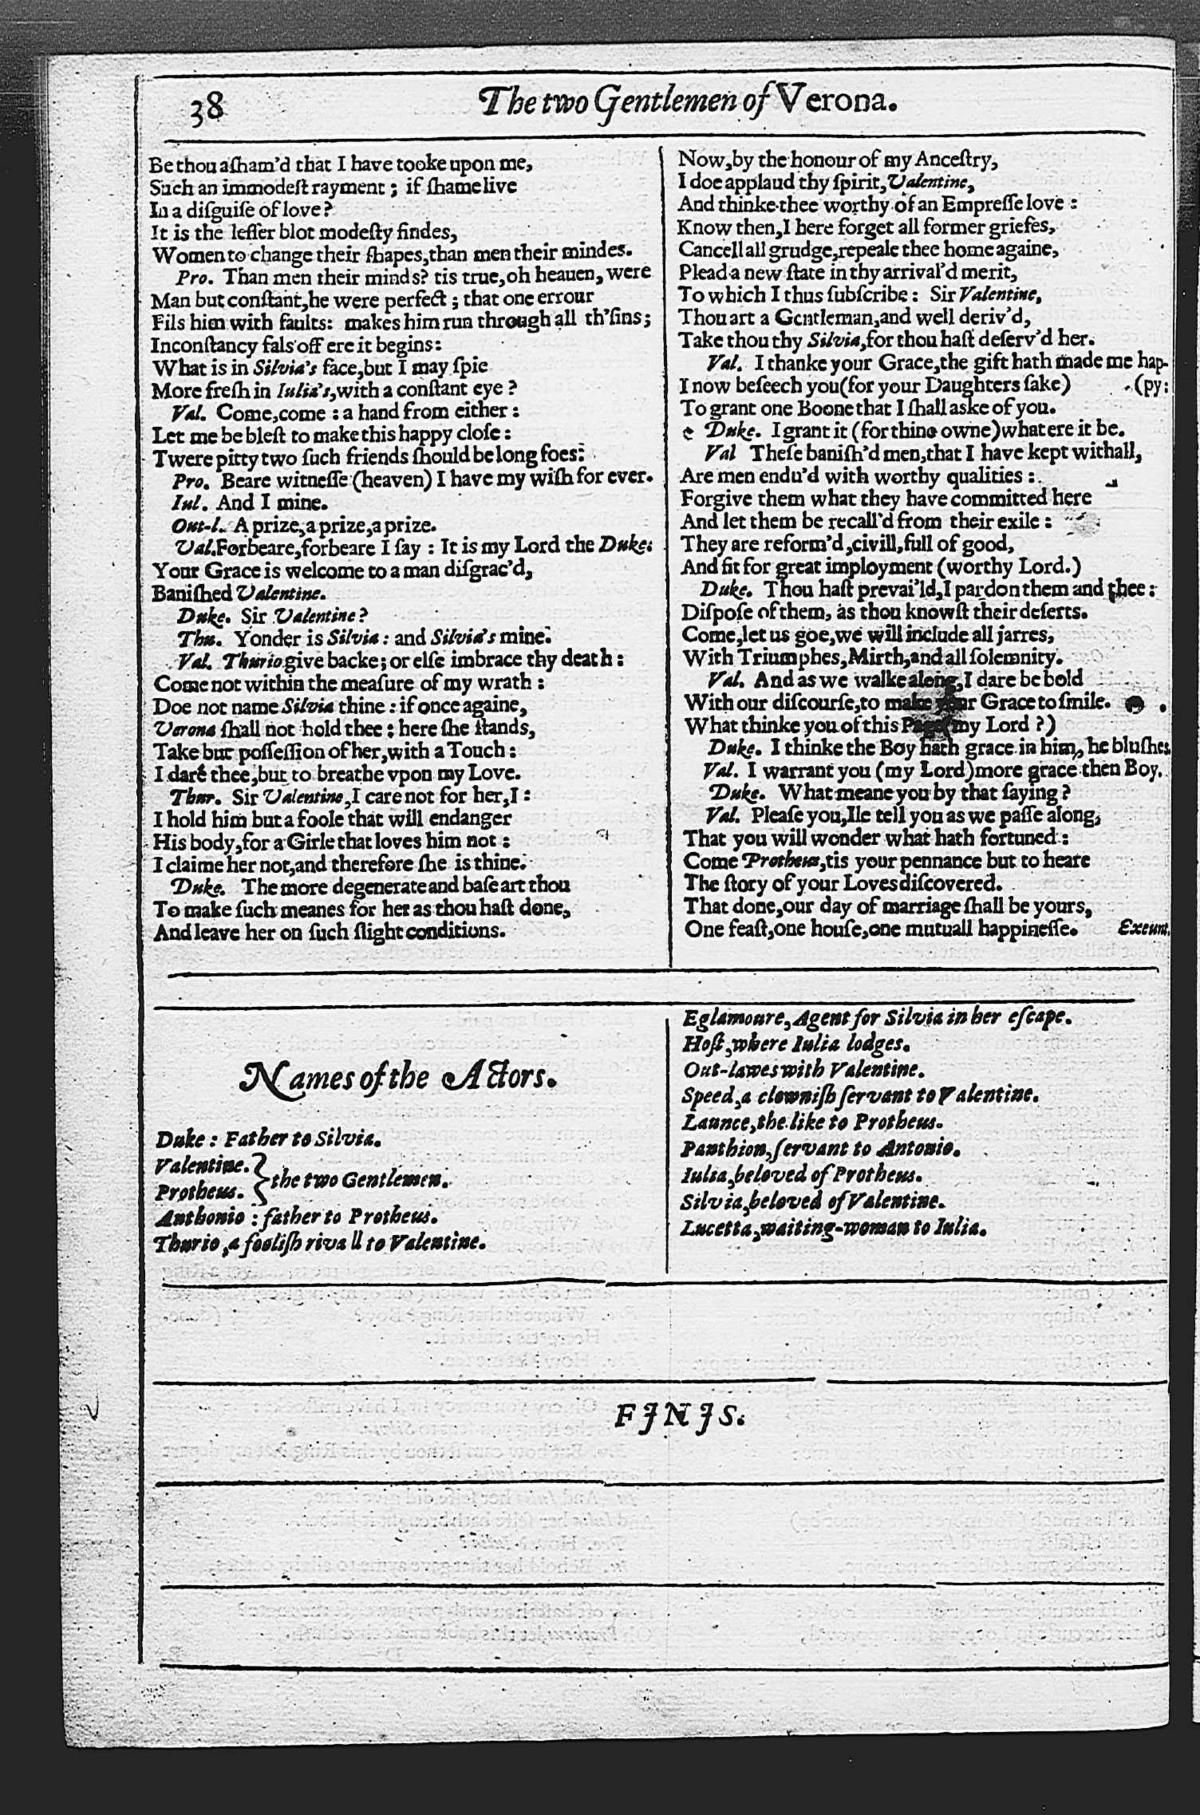 38
The two Gentlemen of Verona.
Be thou aſham'd that I have tooke upon me,
Such an immodeſt rayment ; if ſhame live
In a diſguiſe of love?
It is the leſſer blot modeſty findes,
Women to change their ſhapes,than men their mindes.
Pro. Than men their minds? tis true,oh heauen, were
Man but conſtant,he were perfect ; that one errour
Fils him with faults: makes him run through all th'ſins;
Inconſtancy fals off ere it begins:
What is in Silvia's face,but I may ſpie
More freſh in Iulia's,with a conſtant eye ?
Val. Come,come : a hand from either :
Let me be bleſt to make this happy cloſe :
Twere pitty two ſuch friends ſhould be long foes:
Pro. Beare witneſſe (heaven) I have my wiſh for ever.
Iul. And I mine.
Out-l. A prize,a prize,a prize.
Val.Forbeare,forbeare I ſay : It is my Lord the Duke:
Your Grace is welcome to a man diſgrac'd,
Baniſhed Valentine.
Duke. Sir Valentine?
Thu. Yonder is Silvia : and Silvia's mine.
Val. Thurio give backe; or elſe imbrace thy death :
Come not within the meaſure of my wrath :
Doe not name Silvia thine : if once againe,
Verona ſhall not hold thee : here ſhe ſtands,
Take but poſſeſſion of her,with a Touch :
I dare thee,but to breathe vpon my Love.
Thur. Sir Valentine,I care not for her,I :
I hold him but a foole that will endanger
His body,for a Girle that loves him not :
I claime her not,and therefore ſhe is thine.
Duke. The more degenerate and baſe art thou
To make ſuch meanes for her as thou haſt done,
And leave her on ſuch ſlight conditions.
Now,by the honour of my Anceſtry,
I doe applaud thy ſpirit,Valentine,
And thinke thee worthy of an Empreſſe love :
Know then,I here forget all former griefes,
Cancell all grudge,repeale thee home againe,
Plead a new ſtate in thy arrival'd merit,
To which I thus ſubſcribe : Sir Valentine,
Thou art a Gentleman,and well deriv'd,
Take thou thy Silvia,for thou haſt deſerv'd her.
Val. I thanke your Grace,the gift hath made me hap-
I now beſeech you(for your Daughters ſake) (py:
To grant one Boone that I ſhall aske of you.
Duke. I grant it (for thine owne)what ere it be.
Val Theſe baniſh'd men,that I have kept withall,
Are men endu'd with worthy qualities :
Forgive them what they have committed here
And let them be recall'd from their exile :
They are reform'd,civill,full of good,
And fit for great imployment (worthy Lord.)
Duke. Thou haſt prevai'ld,I pardon them and thee :
Diſpoſe of them, as thou knowſt their deſerts.
Come,let us goe,we will include all jarres,
With Triumphes,Mirth,and all ſolemnity.
Val. And as we walke along,I dare be bold
With our diſcourſe,to make your Grace to ſmile.
What thinke you of this Page(my Lord ?)
Duke. I thinke the Boy hath grace in him, he bluſhes
Val. I warrant you (my Lord)more grace then Boy.
Duke. What meane you by that ſaying ?
Val. Pleaſe you,Ile tell you as we paſſe along,
That you will wonder what hath fortuned :
Come Protheus,tis your pennance but to heare
The ſtory of your Loves diſcovered.
That done,our day of marriage ſhall be yours,
One feaſt,one houſe,one mutuall happineſſe. Exeunt.
Names of the Actors.
Duke : Father to Silvia.
Valentine.
Protheus.
the two Gentlemen.
Anthonio : father to Protheus.
Thurio ,a fooliſh riva ll to Valentine.
Eglamoure, Agent for Silvia in her eſcape.
Hoſt,where Iulia lodges.
Out-lawes with Valentine.
Speed,a clowniſh ſervant to Valentine.
Launce,the like to Protheus.
Panthion,ſervant to Antonio.
Iulia,beloved of Protheus.
Silvia,beloved of Valentine.
Lucetta,waiting-woman to Iulia.
FINIS.